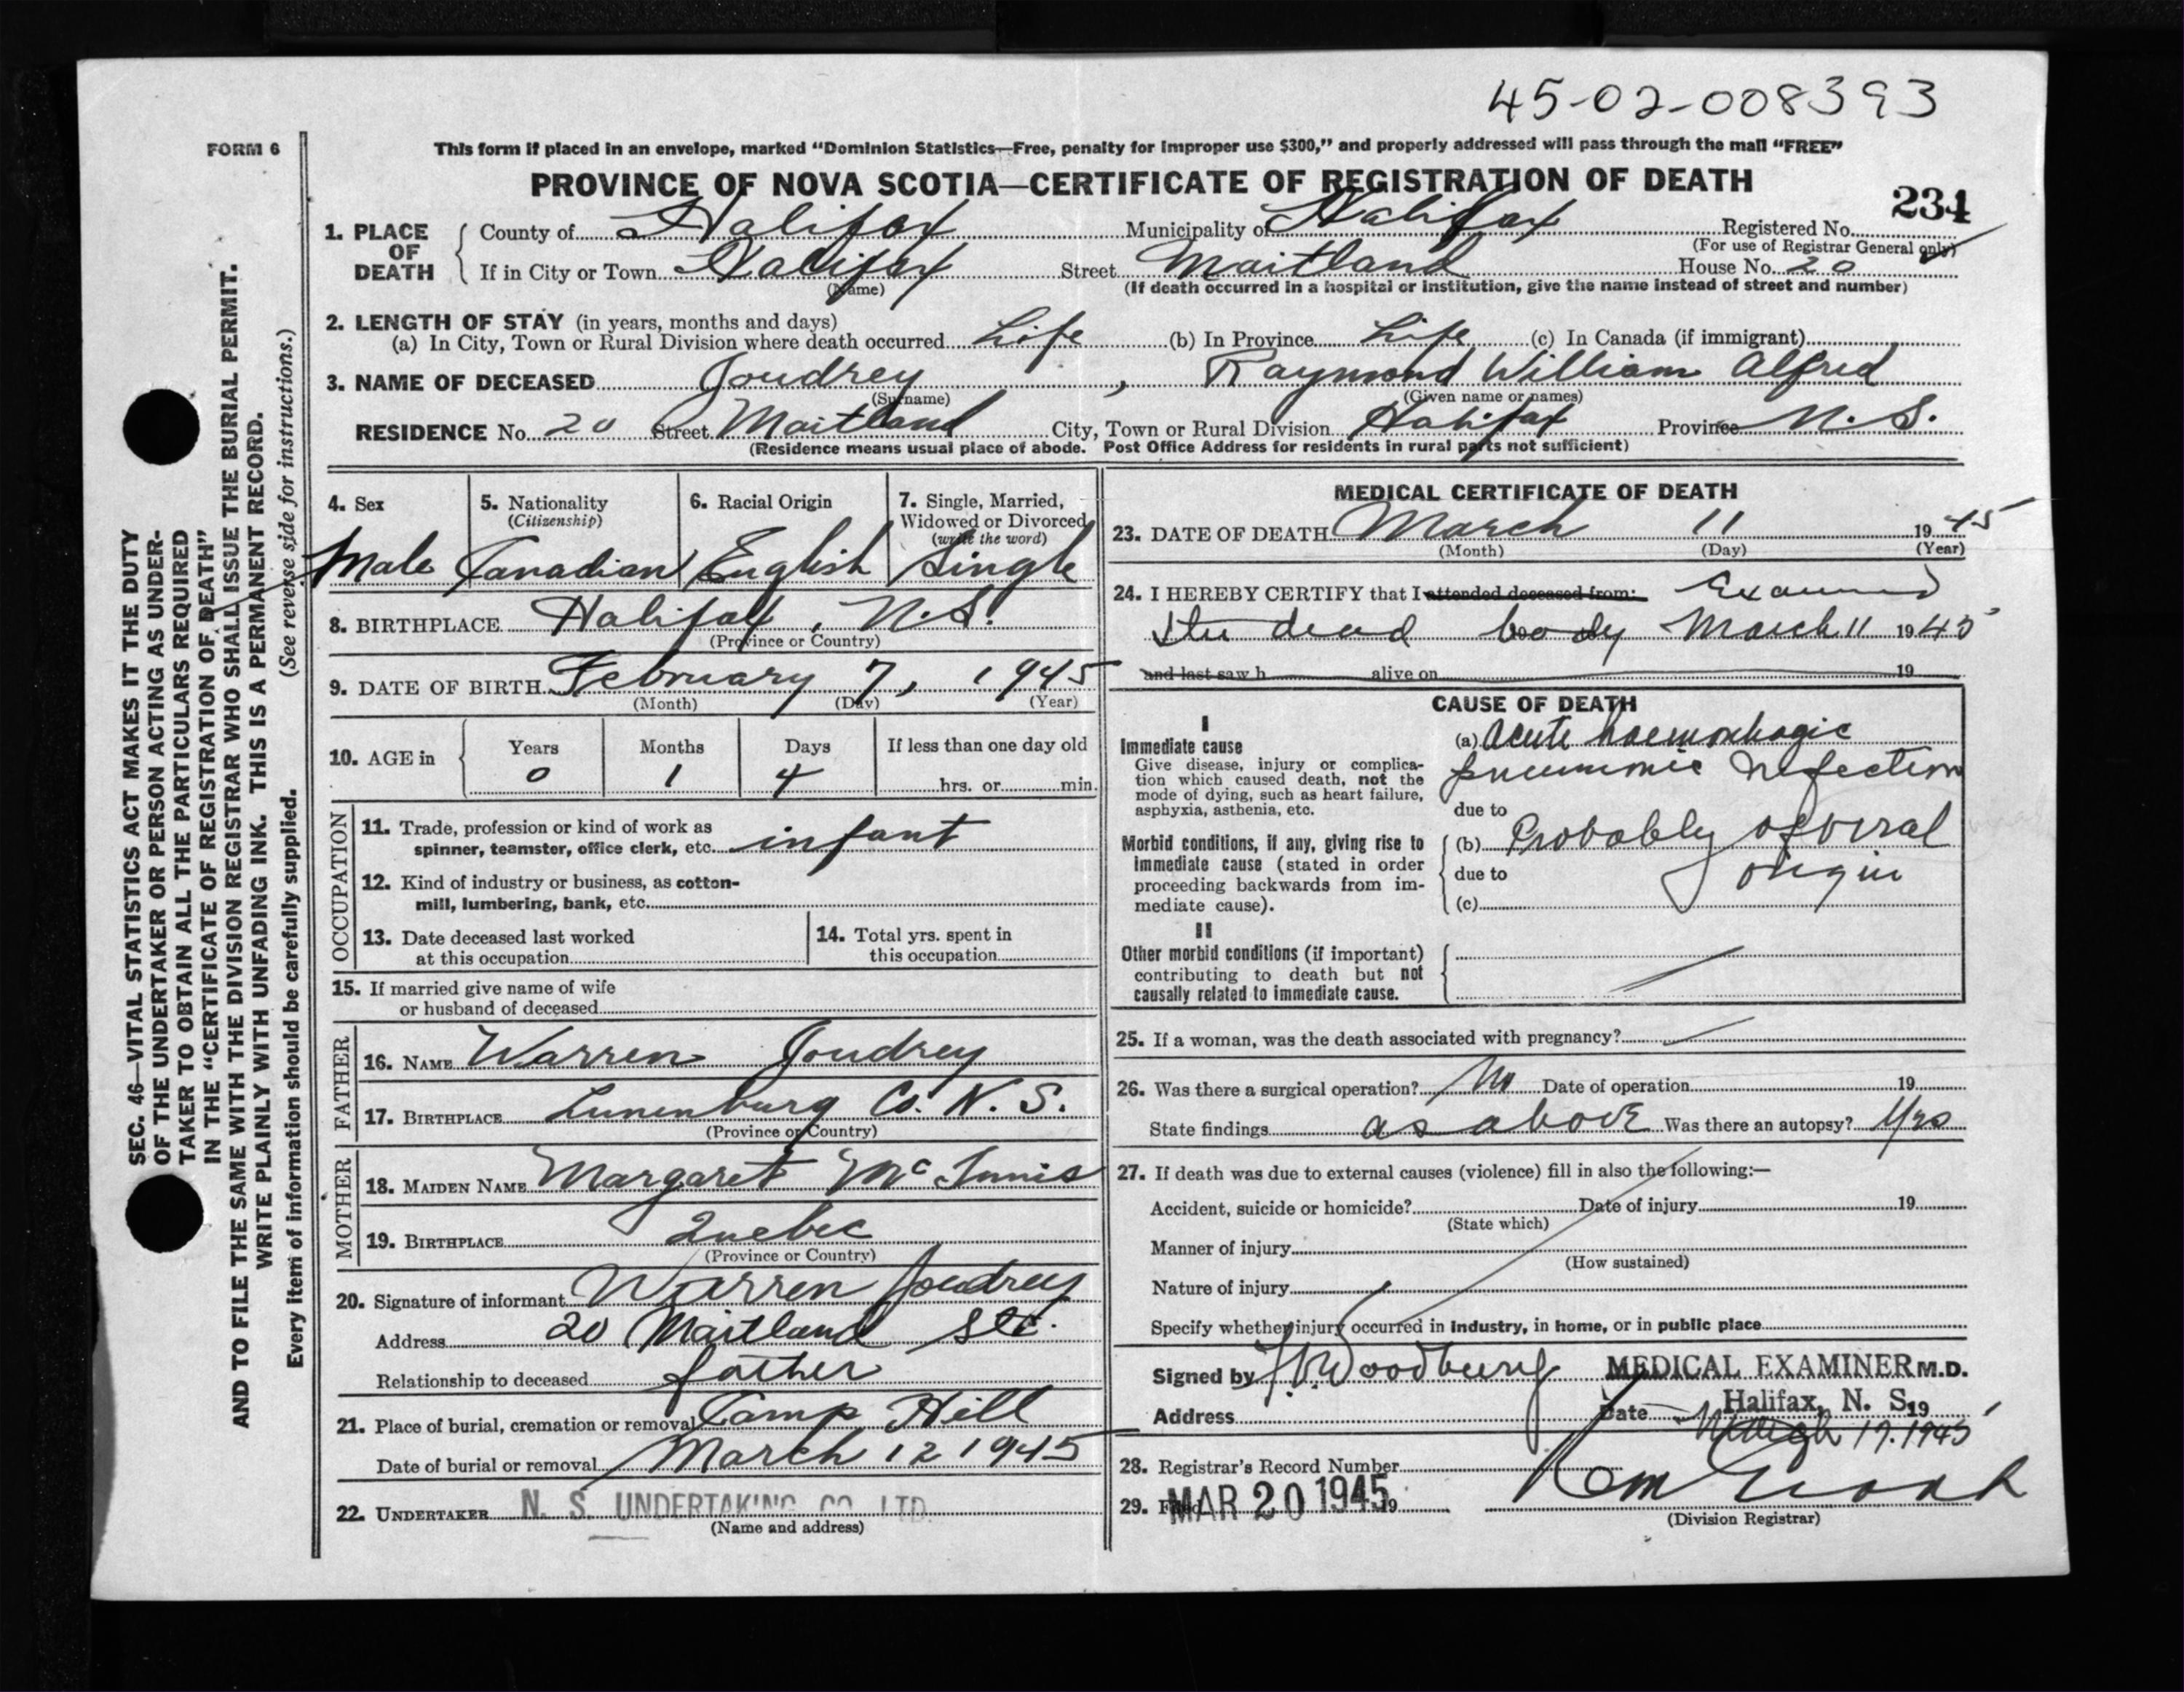 45-02-008393
FORM 6
This form if placed in an envelope, marked “Dominion Statistics—Free, penalty for improper use $300,” and properly addressed will pass through the mail “FREE”
PROVINCE OF NOVA SCOTIA—CERTIFICATE OF REGISTRATION OF DEATH
234
1. PLACE OF DEATH
County of Halifax Municipality of Halifax Registered No.
(For use of Registrar General only)
If in City or Town Halifax Street Maitland House No. 20
(Name) (If death occurred in a hospital or institution, give the name instead of street and number)
2. LENGTH OF STAY (in years, months and days)
(a) In City, Town or Rural Division where death occurred Life (b) In Province Life (c) In Canada (if immigrant)
3. NAME OF DECEASED Joudrey , Raymond William Alfred
(Surname) (Given name or names)
RESIDENCE No. 20 Street Maitland City, Town or Rural Division Halifax Province N.S.
(Residence means usual place of abode. Post Office Address for residents in rural parts not sufficient)
4. Sex
Male
5. Nationality
(Citizenship)
Canadian
6. Racial Origin
English
7. Single, Married,
Widowed or Divorced
(write the word)
Single
8. BIRTHPLACE Halifax, N.S.
(Province or Country)
9. DATE OF BIRTH February 7, 1945
(Month) (Day) (Year)
10. AGE in
Years Months Days If less than one day old
0 1 4 hrs. or min.
OCCUPATION
11. Trade, profession or kind of work as
spinner, teamster, office clerk, etc. infant
12. Kind of industry or business, as cotton-
mill, lumbering, bank, etc.
13. Date deceased last worked
at this occupation
14. Total yrs. spent in
this occupation
15. If married give name of wife
or husband of deceased
FATHER
16. NAME Warren Joudrey
17. BIRTHPLACE Lunenburg Co. N.S.
(Province or Country)
MOTHER
18. MAIDEN NAME Margaret McInnis
19. BIRTHPLACE Quebec
(Province or Country)
20. Signature of informant Warren Joudrey
Address 20 Maitland Str.
Relationship to deceased father
21. Place of burial, cremation or removal Camp Hill
Date of burial or removal March 12 1945
22. UNDERTAKER N. S. UNDERTAKING CO. LTD.
(Name and address)
MEDICAL CERTIFICATE OF DEATH
23. DATE OF DEATH March 11 1945
(Month) (Day) (Year)
24. I HEREBY CERTIFY that I attended deceased from: Examined
the dead body March 11 1945
and last saw h alive on 19
CAUSE OF DEATH
I
Immediate cause
Give disease, injury or complica-
tion which caused death, not the
mode of dying, such as heart failure,
asphyxia, asthenia, etc.
(a) Acute haemorrhagic
pneumonic infection
due to
Morbid conditions, if any, giving rise to
immediate cause (stated in order
proceeding backwards from im-
mediate cause).
(b) Probably of viral
due to origin
(c)
II
Other morbid conditions (if important)
contributing to death but not
causally related to immediate cause.
25. If a woman, was the death associated with pregnancy?
26. Was there a surgical operation? No Date of operation 19
State findings as above Was there an autopsy? Yes
27. If death was due to external causes (violence) fill in also the following:—
Accident, suicide or homicide? Date of injury 19
(State which)
Manner of injury
(How sustained)
Nature of injury
Specify whether injury occurred in industry, in home, or in public place
Signed by Woodbury MEDICAL EXAMINER M.D.
Address Halifax, N. S.
Date 19 March 17. 1945
28. Registrar's Record Number
29. Filed MAR 20 1945 19
(Division Registrar)
SEC. 46—VITAL STATISTICS ACT MAKES IT THE DUTY
OF THE UNDERTAKER OR PERSON ACTING AS UNDER-
TAKER TO OBTAIN ALL THE PARTICULARS REQUIRED
IN THE “CERTIFICATE OF REGISTRATION OF DEATH”
AND TO FILE THE SAME WITH THE DIVISION REGISTRAR WHO SHALL ISSUE THE BURIAL PERMIT.
WRITE PLAINLY WITH UNFADING INK. THIS IS A PERMANENT RECORD.
(See reverse side for instructions.)
Every item of information should be carefully supplied.